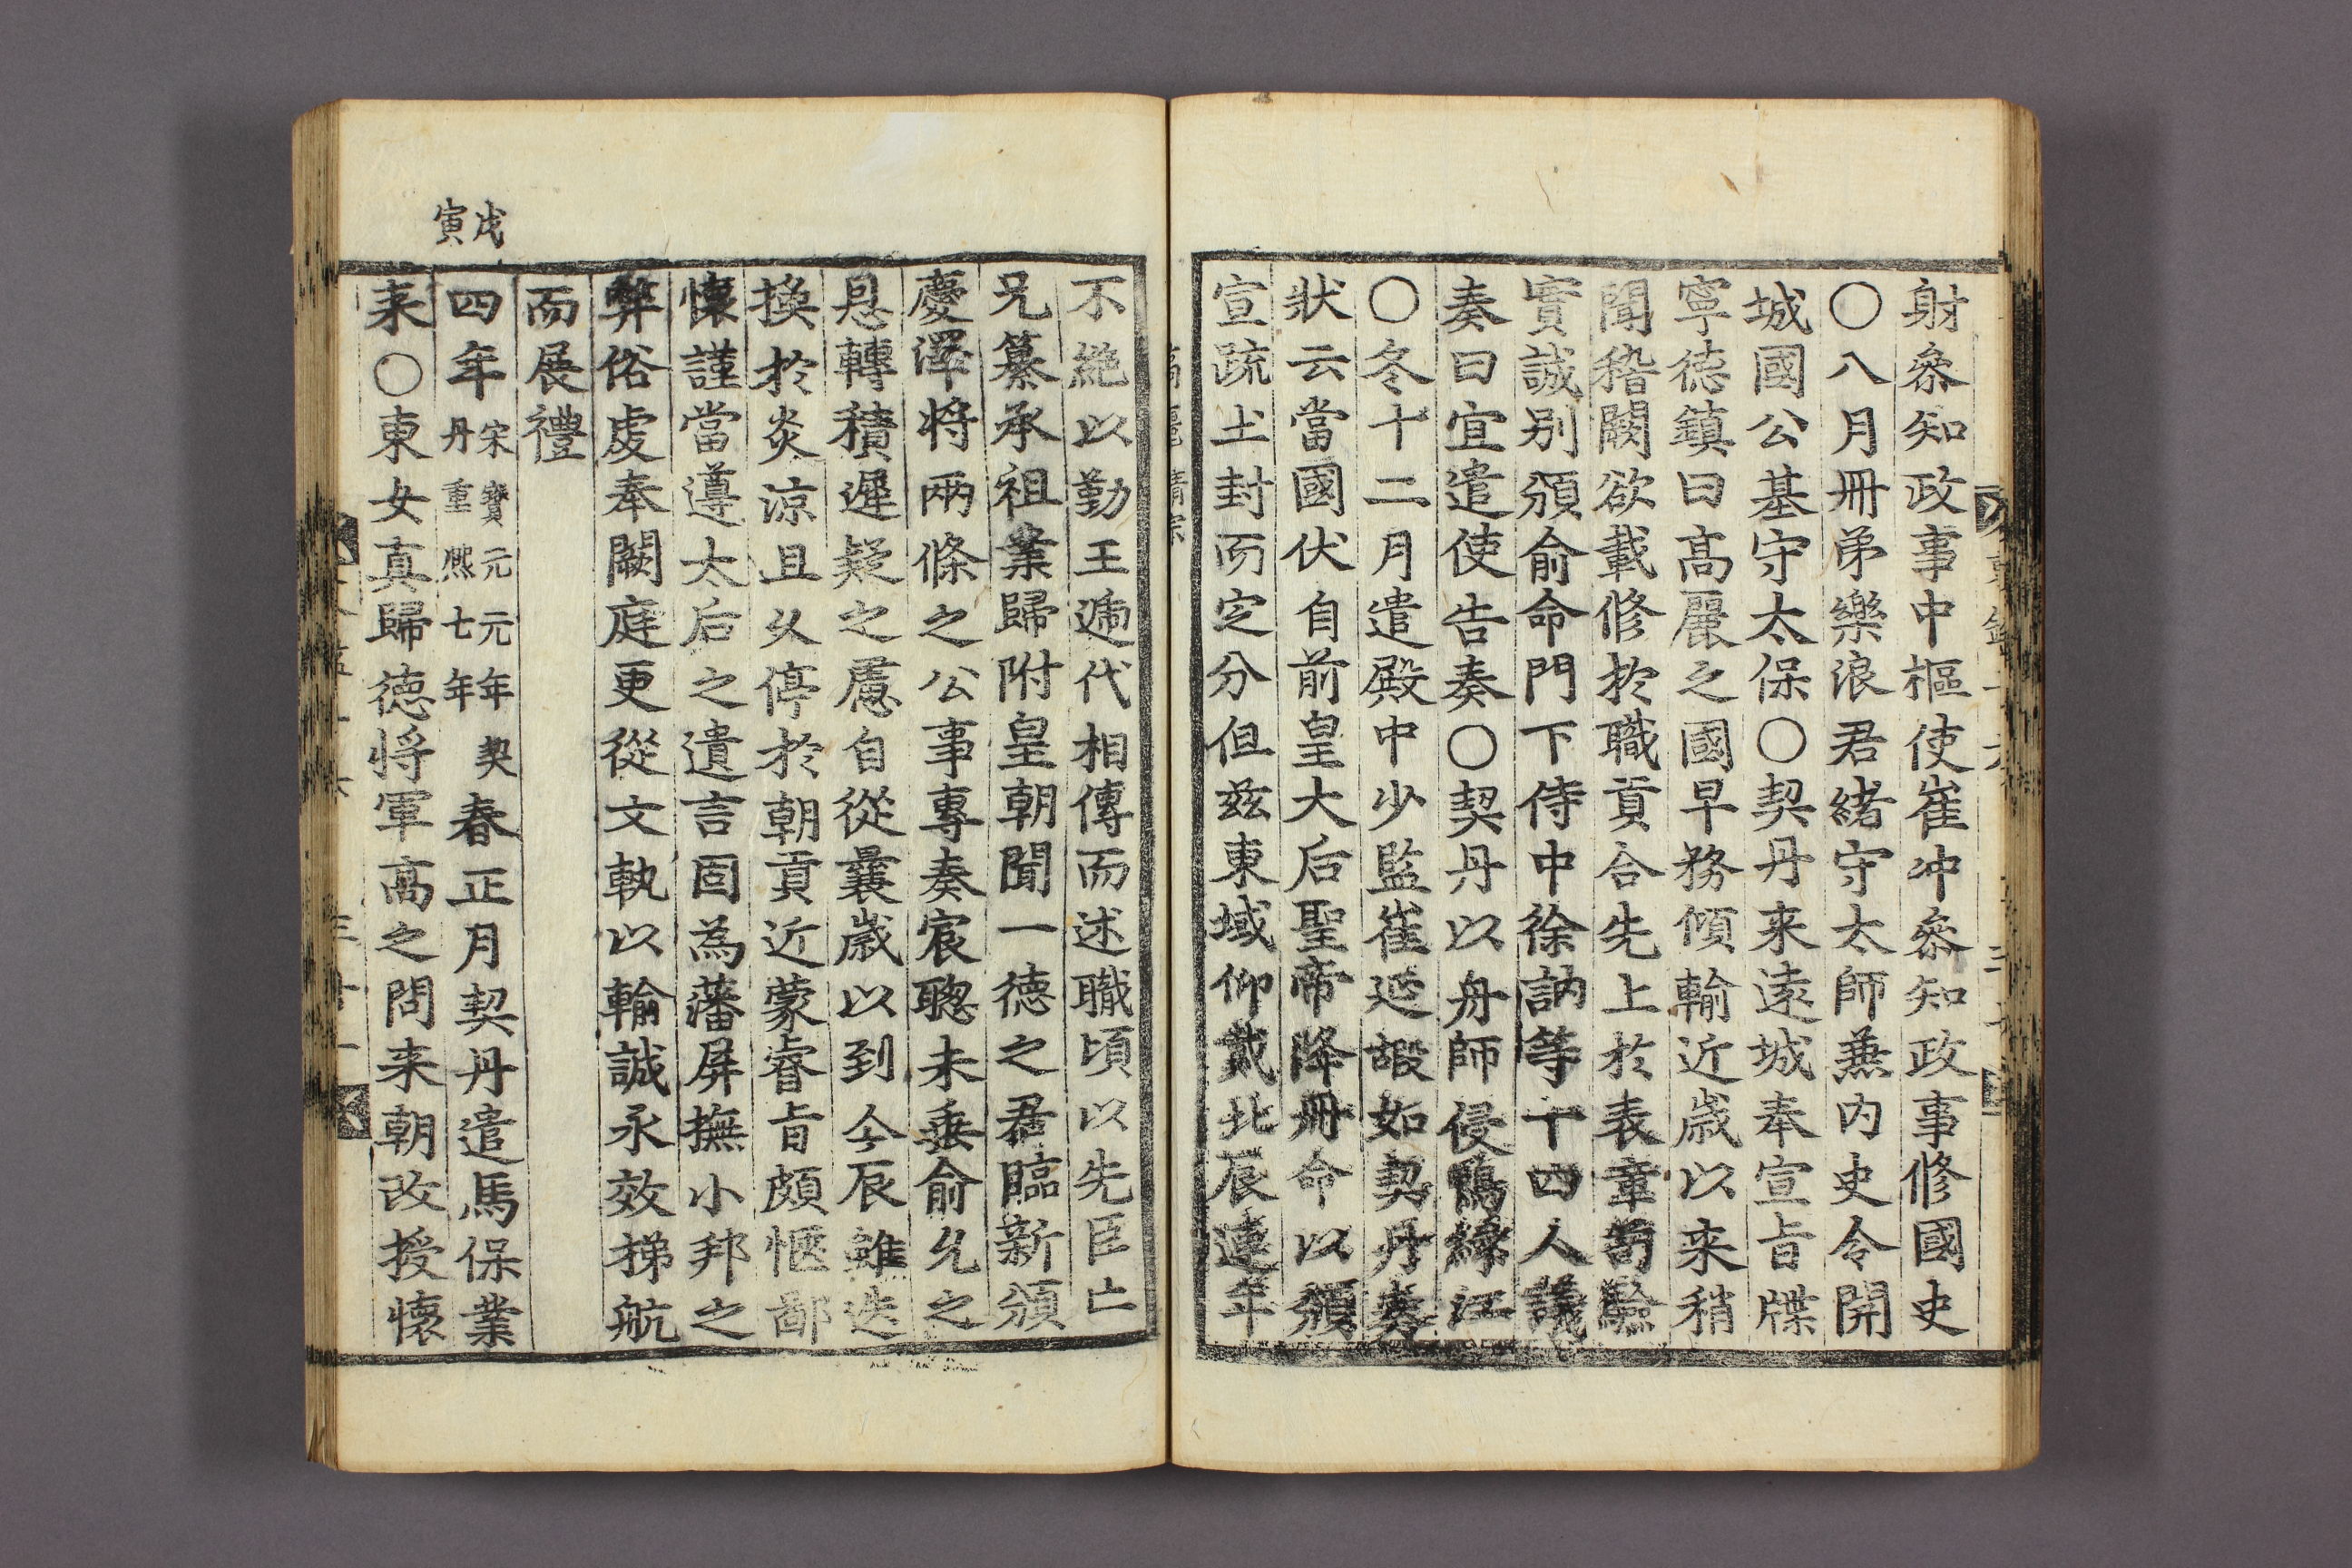 射叅知政事中樞使崔冲叅知政事修國史
○八月冊弟樂浪君緒守太師兼內史令開
城國公基守太保○契丹来遠城奉宣旨牒
寧德鎮曰高麗之國早務傾輸近歳以来稍
聞稽闕欲載修於職貢合先上於表章苟驗
實誠別頒俞命門下侍中徐訥等十四人議
奏曰宜遣使告奏○契丹以舟師侵鴨綠江
○冬十二月遣殿中少監崔延嘏如契丹奏
狀云當國伏自前皇大后聖帝降冊命以頒
宣疏土封而定分但兹東域仰戴北辰連年
不絶以勤王逓代相傳而述職頃以先臣亡
兄纂承祖業歸附皇朝聞一德之君臨新頒
慶澤将兩條之公事專奏宸聦未垂俞允之
恩轉積遲疑之慮自從曩歳以到今辰雖迭
換於炎涼且久停於朝貢近蒙睿旨頗愜鄙
懐謹當遵太后之遺言固為藩屏撫小邦之
弊俗虔奉闕庭更從文執以輸誠永效梯航
而展禮
戊寅
四年宋寶元元年契丹重熙七年春正月契丹遣馬保業
来○東女真歸德将軍高之問来朝改授懐